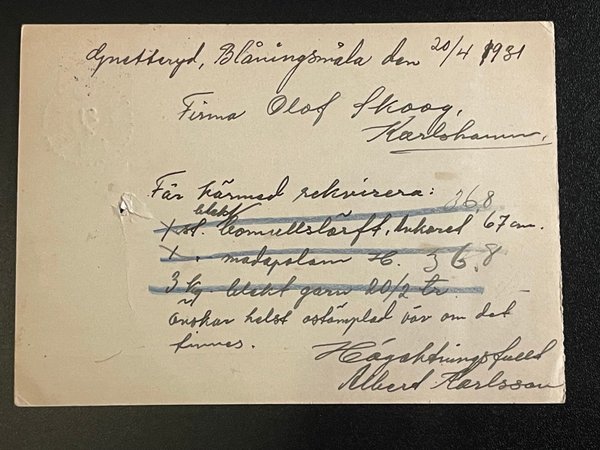 Gnetteryd, Blåningsmåla den 20/4 1931
Firma Olof Skoog,
Karlshamn.
Får härmed rekvirera: 36,8
blekt
1 st. bomullslärft, 67 cm.
1 " madapolam H. 36,8
3 kg blekt garn 20/2 tr.
önskar helst ostämplad var om det
finnes.
Högaktningsfullt
Albert Karlsson